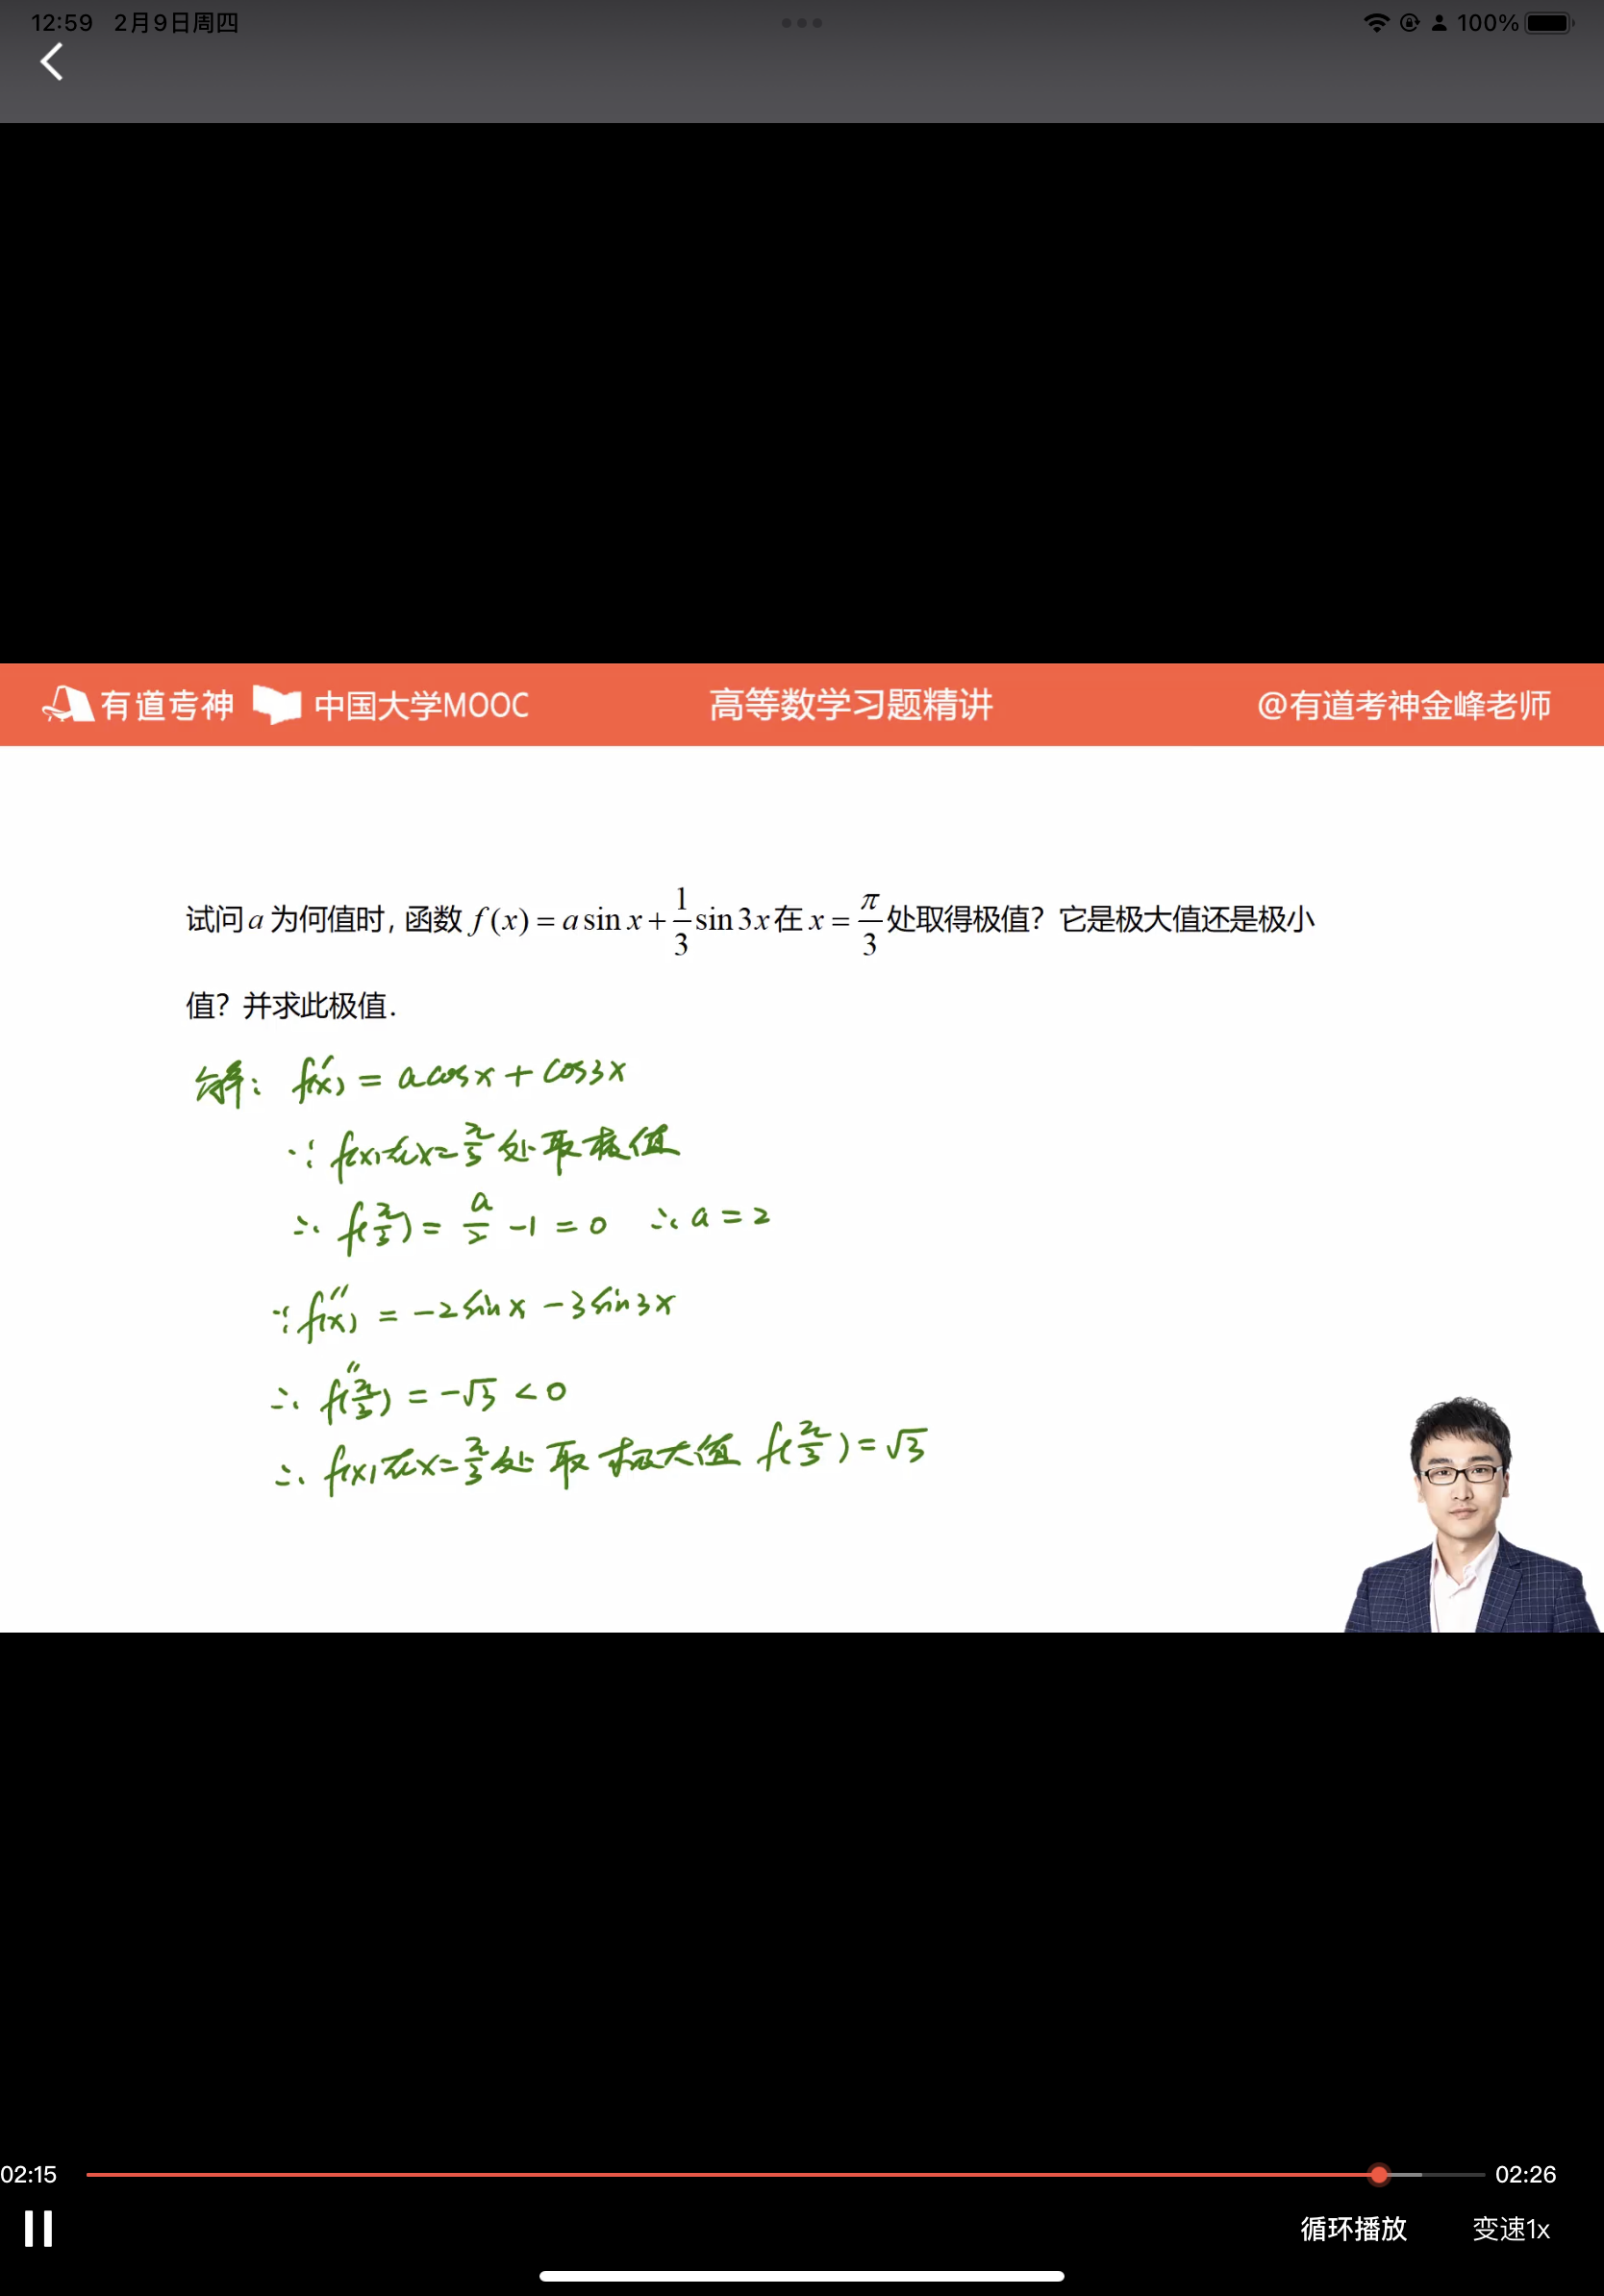 12:59 2月9日周四
100%
有道考神 中国大学MOOC 高等数学习题精讲 @有道考神金峰老师
试问 a 为何值时, 函数 f(x) = a sin x + 1/3 sin 3x 在 x = π/3 处取得极值? 它是极大值还是极小
值? 并求此极值.
解: f'(x) = a cos x + cos 3x
∵ f(x)在x=π/3处取极值
∴ f(π/3) = a/2 - 1 = 0 ∴ a = 2
∵ f''(x) = -2 sin x - 3 sin 3x
∴ f''(π/3) = -√3 < 0
∴ f(x)在x=π/3处取极大值 f(π/3) = √3
02:15 02:26
循环播放 变速1x